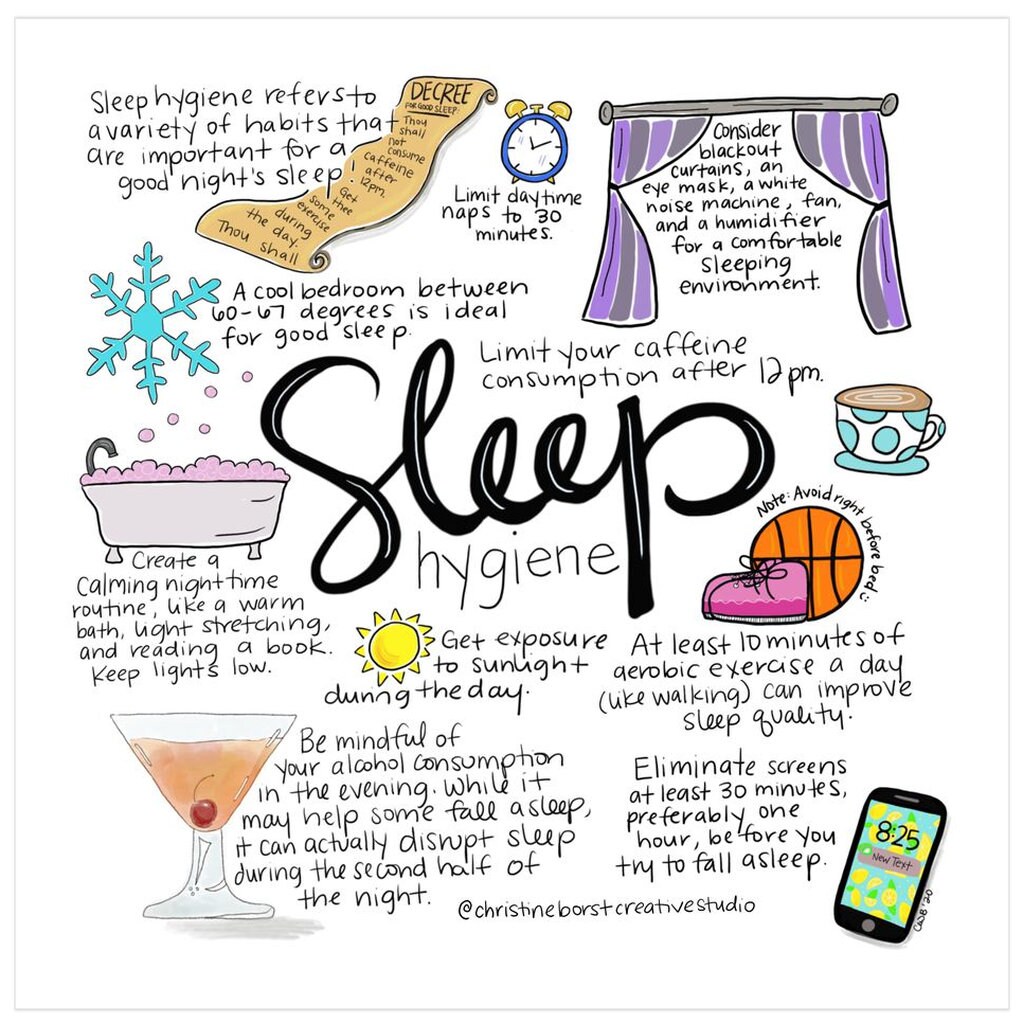 Sleep hygiene refers to
a variety of habits that
are important for a
good night's sleep!
DECREE
FOR GOOD SLEEP:
Thou
shall
not
consume
caffeine
after
12pm.
Get
thee
some
exercise
during
the day.
Thou shall
Limit daytime
naps to 30
minutes.
Consider
blackout
curtains, an
eye mask, a white
noise machine, fan,
and a humidifier
for a comfortable
sleeping
environment.
A cool bedroom between
60-67 degrees is ideal
for good sleep.
Limit your caffeine
consumption after 12pm.
Sleep
hygiene
Note: Avoid right before bed :)
Create a
Calming nighttime
routine, like a warm
bath, light stretching,
and reading a book.
Keep lights low.
Get exposure
to sunlight
during the day.
At least 10 minutes of
aerobic exercise a day
(like walking) can improve
sleep quality.
Be mindful of
your alcohol consumption
in the evening. While it
may help some fall asleep,
it can actually disrupt sleep
during the second half of
the night.
Eliminate screens
at least 30 minutes,
preferably one
hour, before you
try to fall asleep.
8:25
New Text
@christineborstcreativestudio
CWB '20